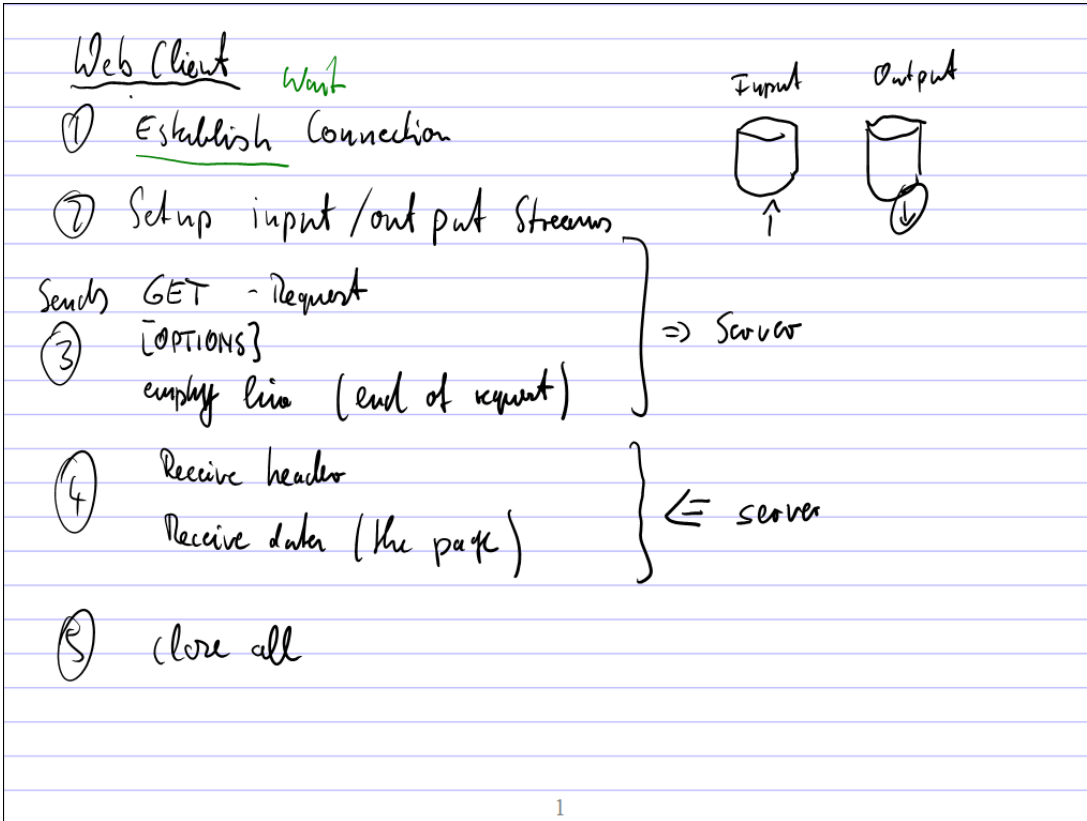 Web Client
Wait
Input Output
① Establish Connection
② Setup input/output Streams
Sends GET - Request
③ [OPTIONS]
empty line (end of request)
=> Server
④ Receive header
Receive data (the page)
<= server
⑤ close all
1